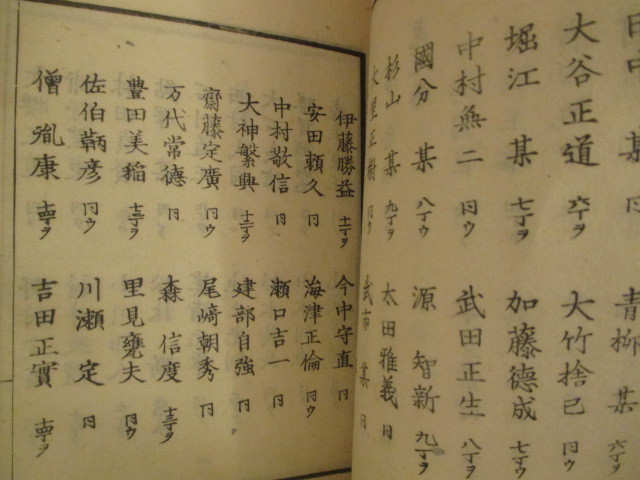 田中 某 同
青柳 某 六丁ヲ
大谷正道 六丁ヲ
大竹捨己 同ウ
堀江 某 七丁ヲ
加藤德成 七丁ウ
中村無二 同ウ
武田正生 八丁ヲ
國分 某 八丁ウ
源 智新 九丁ヲ
杉山 某 九丁ヲ
太田雅義 同
武市 某 同
伊藤勝益 十一丁ヲ
今中守直 同
安田頼久 同
海津正倫 同ウ
中村敬信 同
瀬口吉一 同
大神繁興 十二丁ヲ
建部自強 同
齋藤定廣 同ウ
尾﨑朝秀 同
万代常德 同
森 信度 十三丁ヲ
豊田美稲 十三丁ヲ
里見甕夫 同ウ
佐伯鞆彦 同ウ
川瀬 定 同
僧 胤康 十四丁ヲ
吉田正實 十四丁ヲ